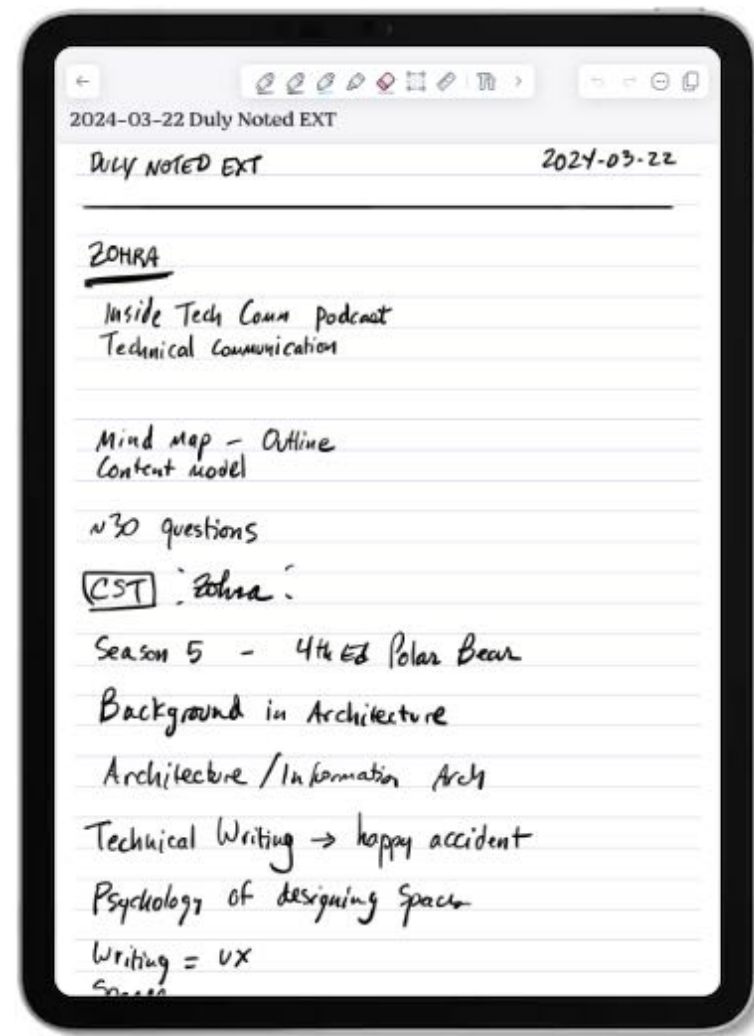 2024-03-22 Duly Noted EXT
DULY NOTED EXT 2024-03-22
ZOHRA
Inside Tech Comm Podcast
Technical Communication
Mind Map - Outline
Content model
~30 questions
CST Zohra
Season 5 - 4th Ed Polar Bear
Background in Architecture
Architecture / Information Arch
Technical Writing → happy accident
Psychology of designing Spaces
Writing = UX